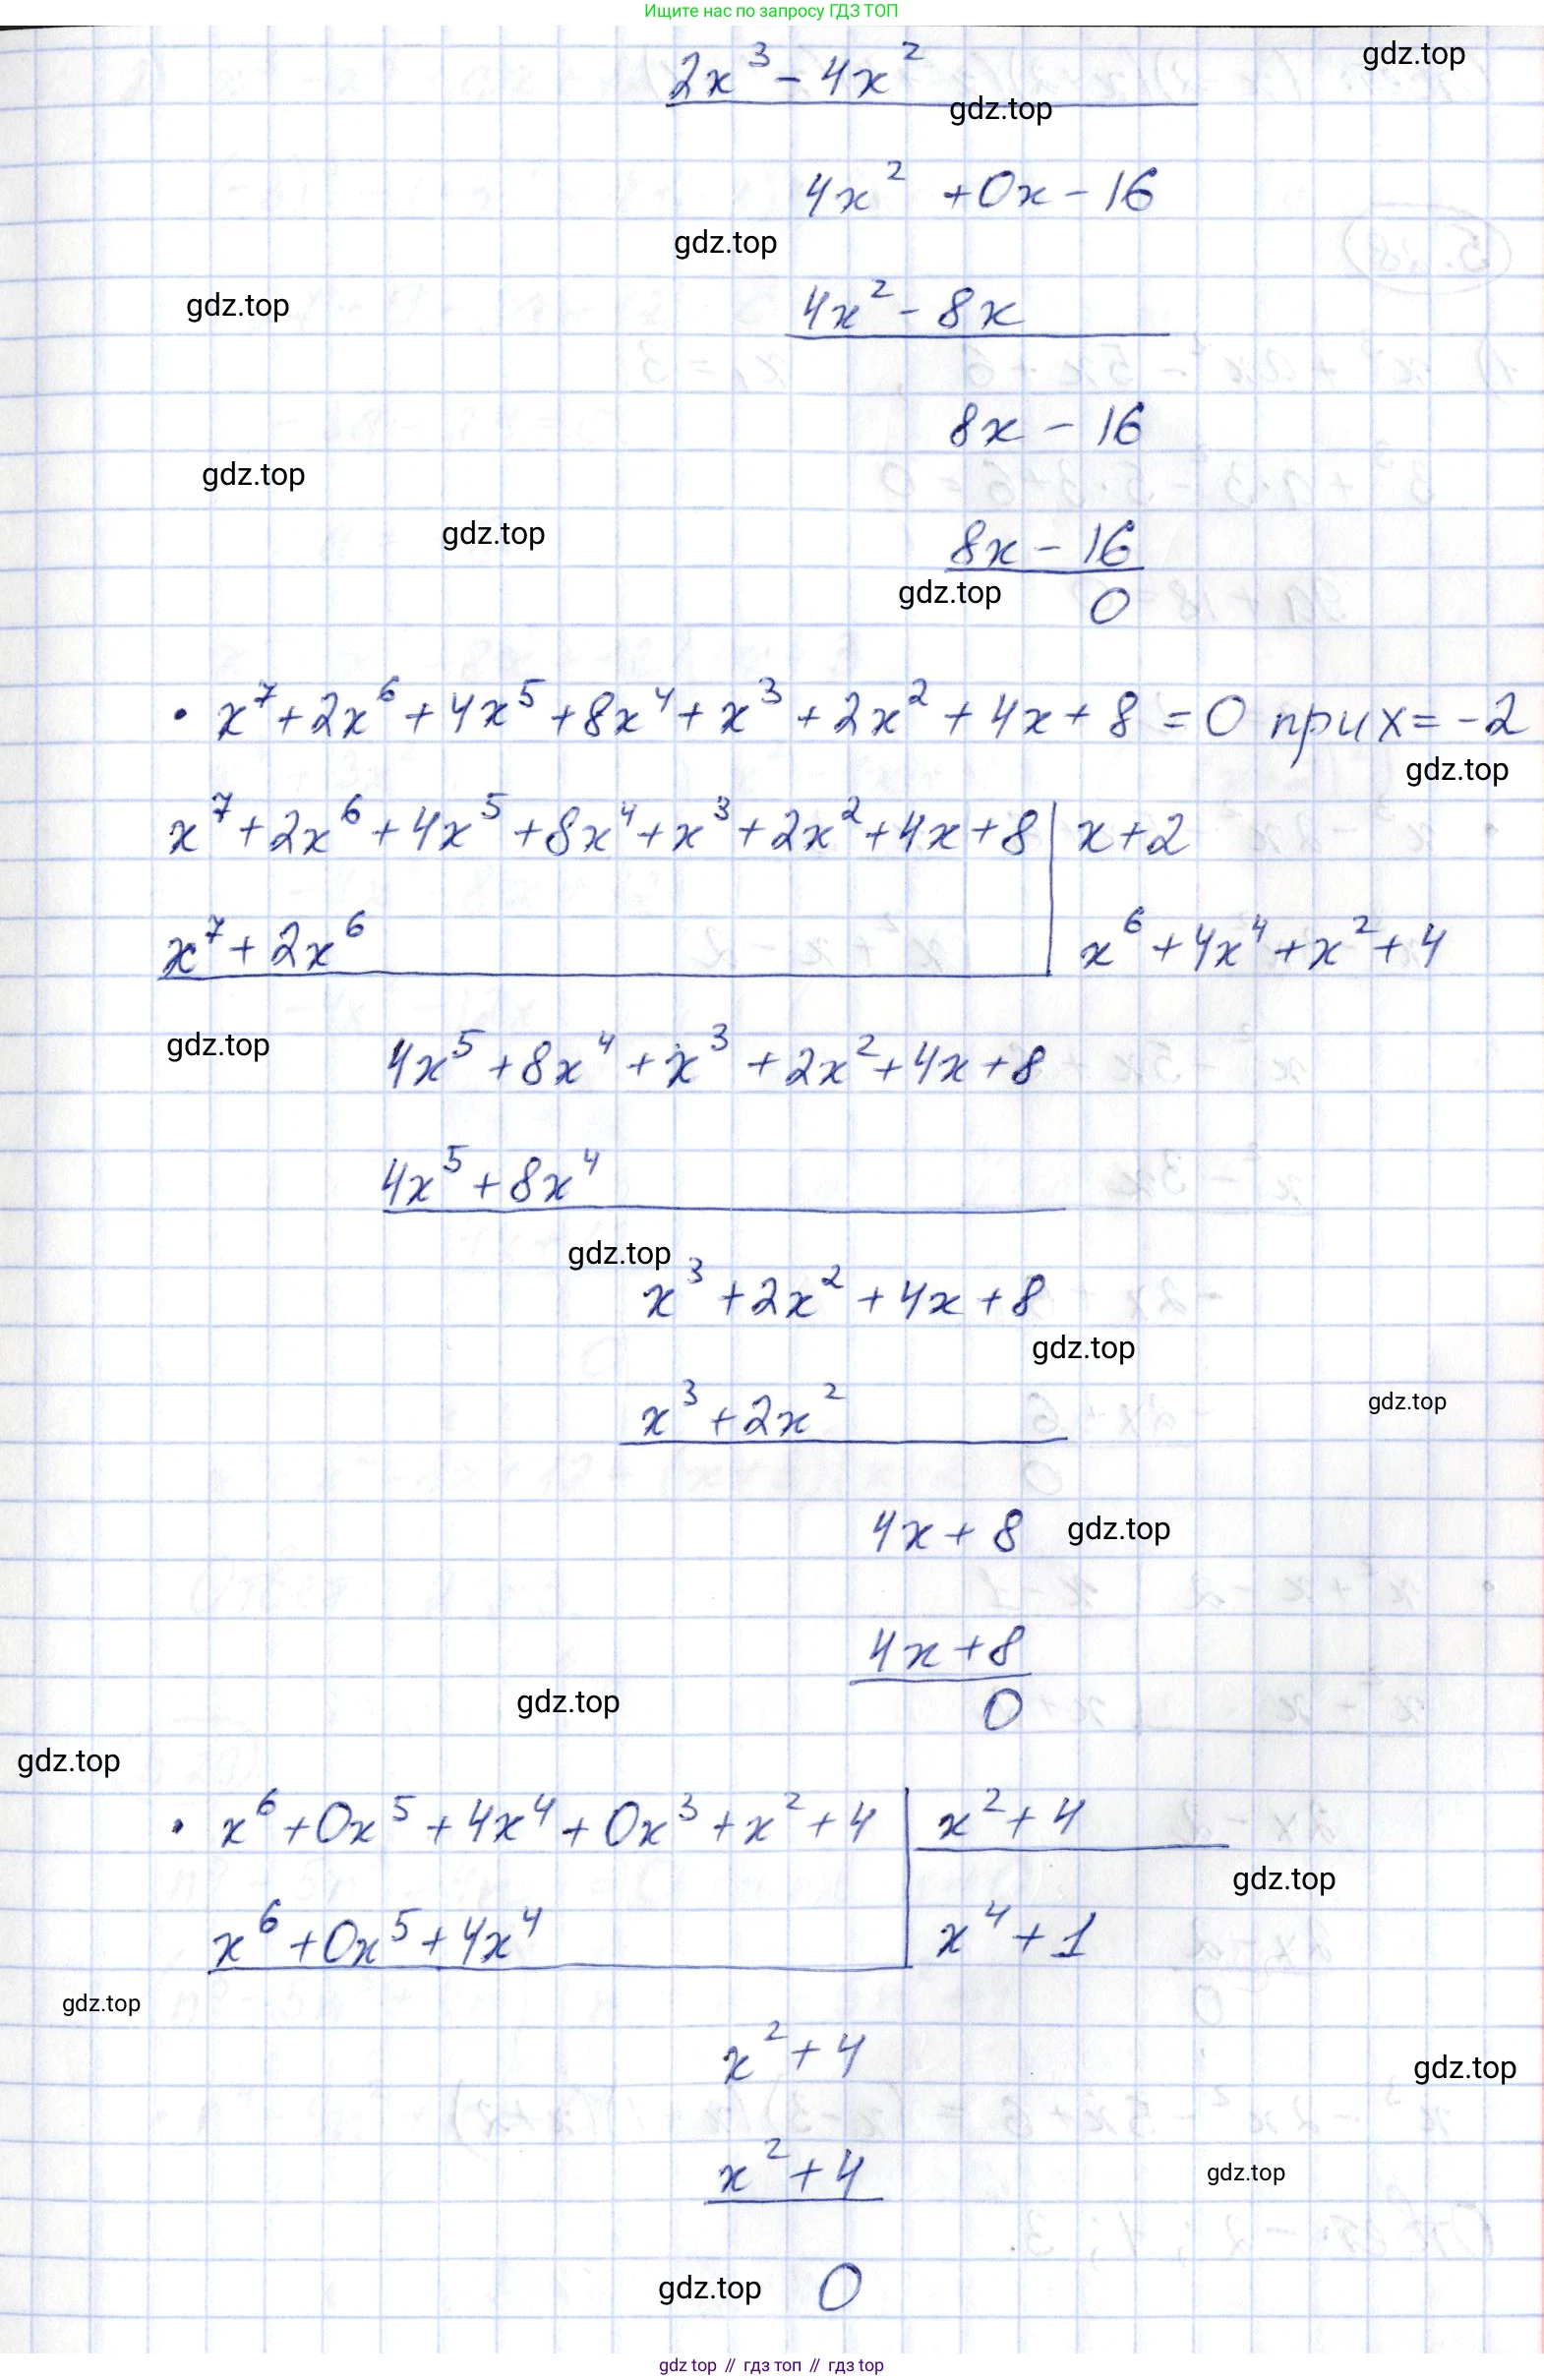 Ищите нас по запросу ГДЗ ТОП
2x³ - 4x²
gdz.top
gdz.top
4x² + 0x - 16
gdz.top
gdz.top
4x² - 8x
8x - 16
gdz.top
gdz.top
8x - 16
gdz.top
0
• x⁷ + 2x⁶ + 4x⁵ + 8x⁴ + x³ + 2x² + 4x + 8 = 0 при x = -2
gdz.top
x⁷ + 2x⁶ + 4x⁵ + 8x⁴ + x³ + 2x² + 4x + 8 | x + 2
x⁷ + 2x⁶ | x⁶ + 4x⁴ + x² + 4
gdz.top
4x⁵ + 8x⁴ + x³ + 2x² + 4x + 8
4x⁵ + 8x⁴
gdz.top
x³ + 2x² + 4x + 8
gdz.top
x³ + 2x²
gdz.top
4x + 8
gdz.top
4x + 8
gdz.top
0
gdz.top
• x⁶ + 0x⁵ + 4x⁴ + 0x³ + x² + 4 | x² + 4
gdz.top
x⁶ + 0x⁵ + 4x⁴ | x⁴ + 1
gdz.top
x² + 4
gdz.top
x² + 4
gdz.top
gdz.top
0
gdz top // гдз топ // гдз top